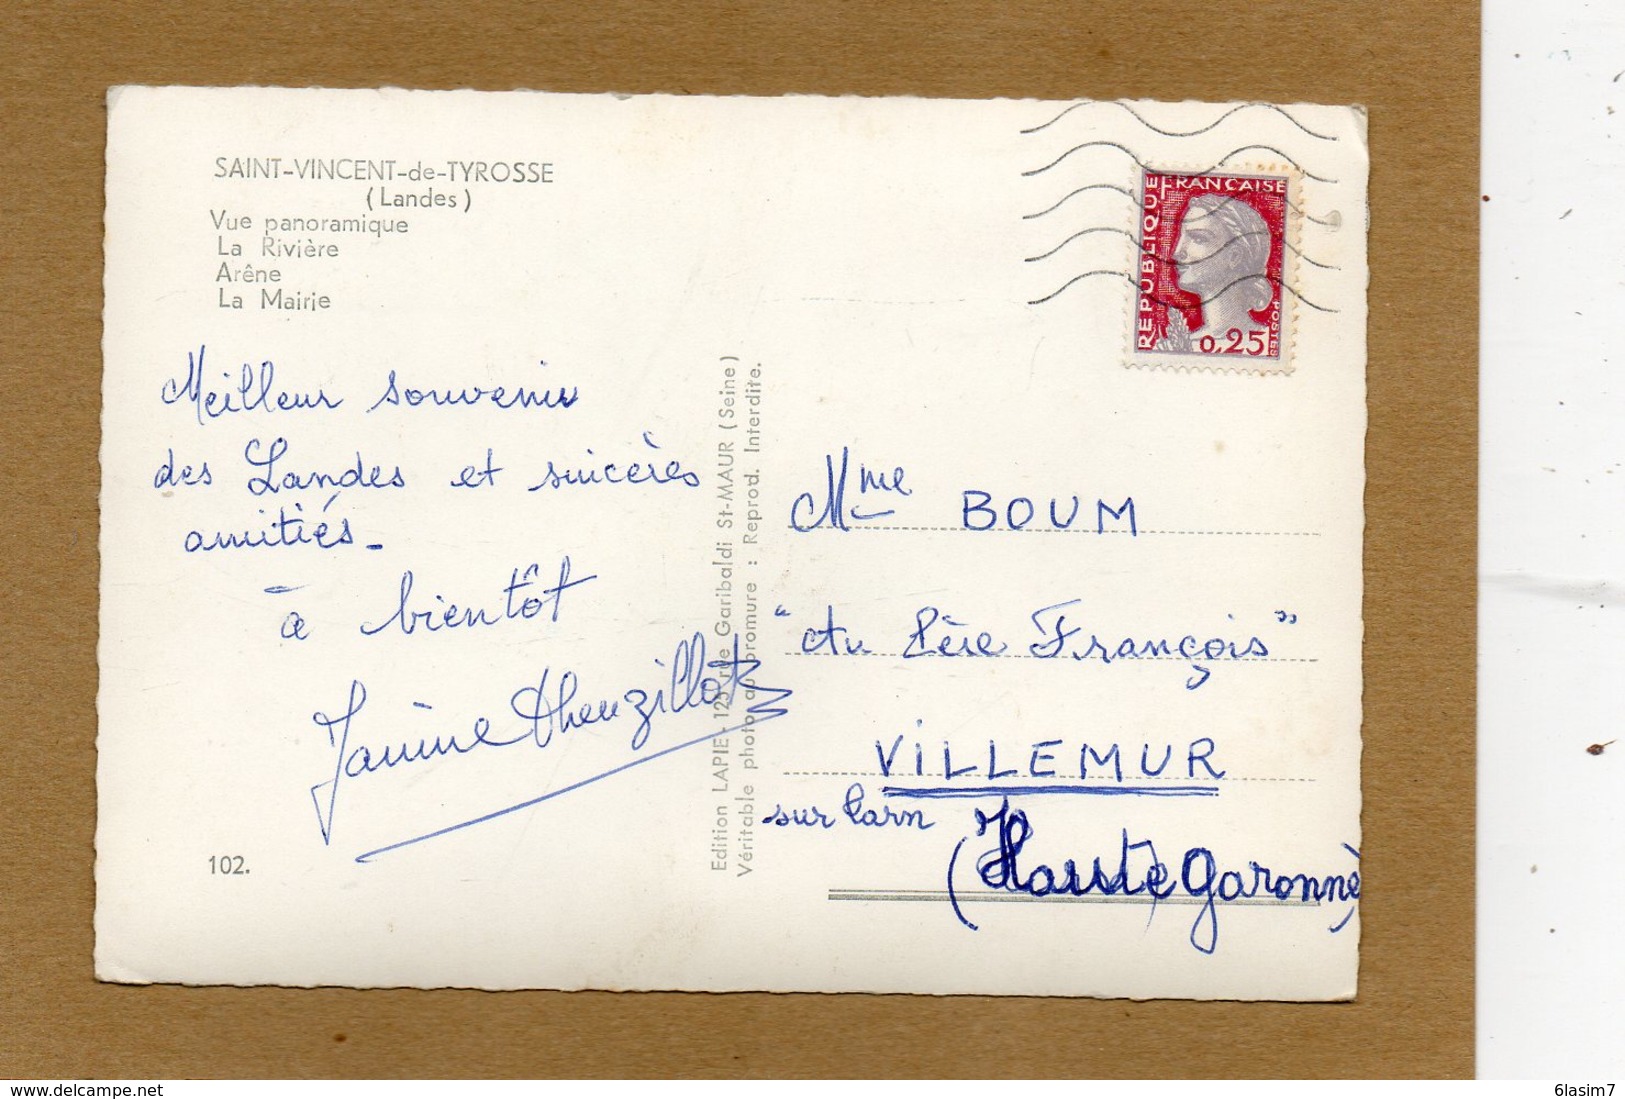 SAINT-VINCENT-de-TYROSSE
(Landes)
Vue panoramique
La Rivière
Arêne
La Mairie
Meilleur souvenir
des Landes et sincères
amitiés_
à bientôt
Janine
102.
Edition LAPIE, 125 rue Garibaldi St-MAUR (Seine)
Véritable photo au bromure : Reprod. Interdite.
REPUBLIQUE FRANCAISE
POSTES
0,25
Mme BOUM
"Au Père François"
VILLEMUR
sur Tarn
(Haute Garonne)
delcampe.net
6lasim7